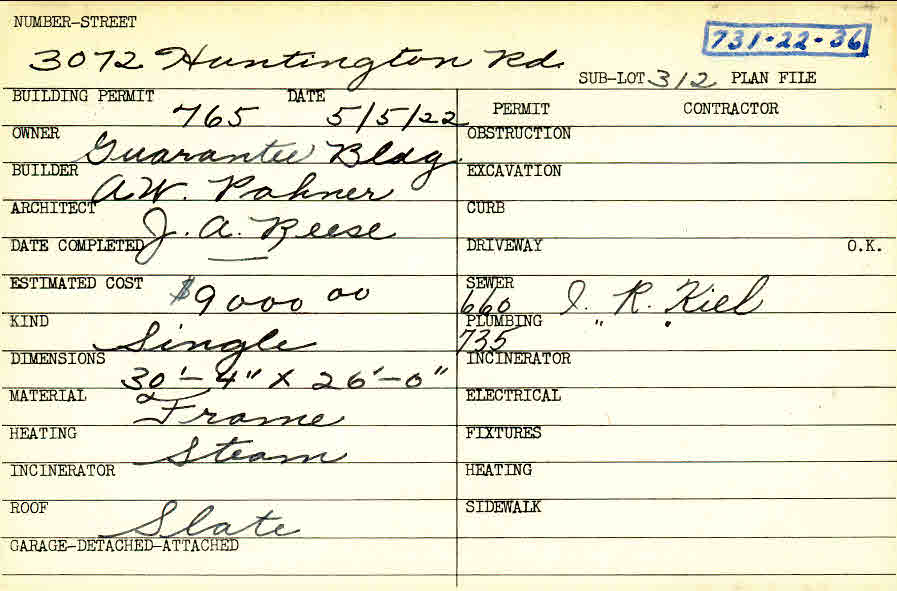 NUMBER-STREET
731-22-36
3072 Huntington Rd.
SUB-LOT 312 PLAN FILE
BUILDING PERMIT 765 DATE 5/5/22
PERMIT CONTRACTOR
OWNER Guarantee Bldg.
OBSTRUCTION
BUILDER A.W. Pahner
EXCAVATION
ARCHITECT J. A. Reese
CURB
DATE COMPLETED —
DRIVEWAY O.K.
ESTIMATED COST $9000 00
SEWER 660 J. R. Kiel
KIND Single
PLUMBING 735 " "
DIMENSIONS 30'-4" X 26'-0"
INCINERATOR
MATERIAL Frame
ELECTRICAL
HEATING Steam
FIXTURES
INCINERATOR
HEATING
ROOF Slate
SIDEWALK
GARAGE-DETACHED-ATTACHED